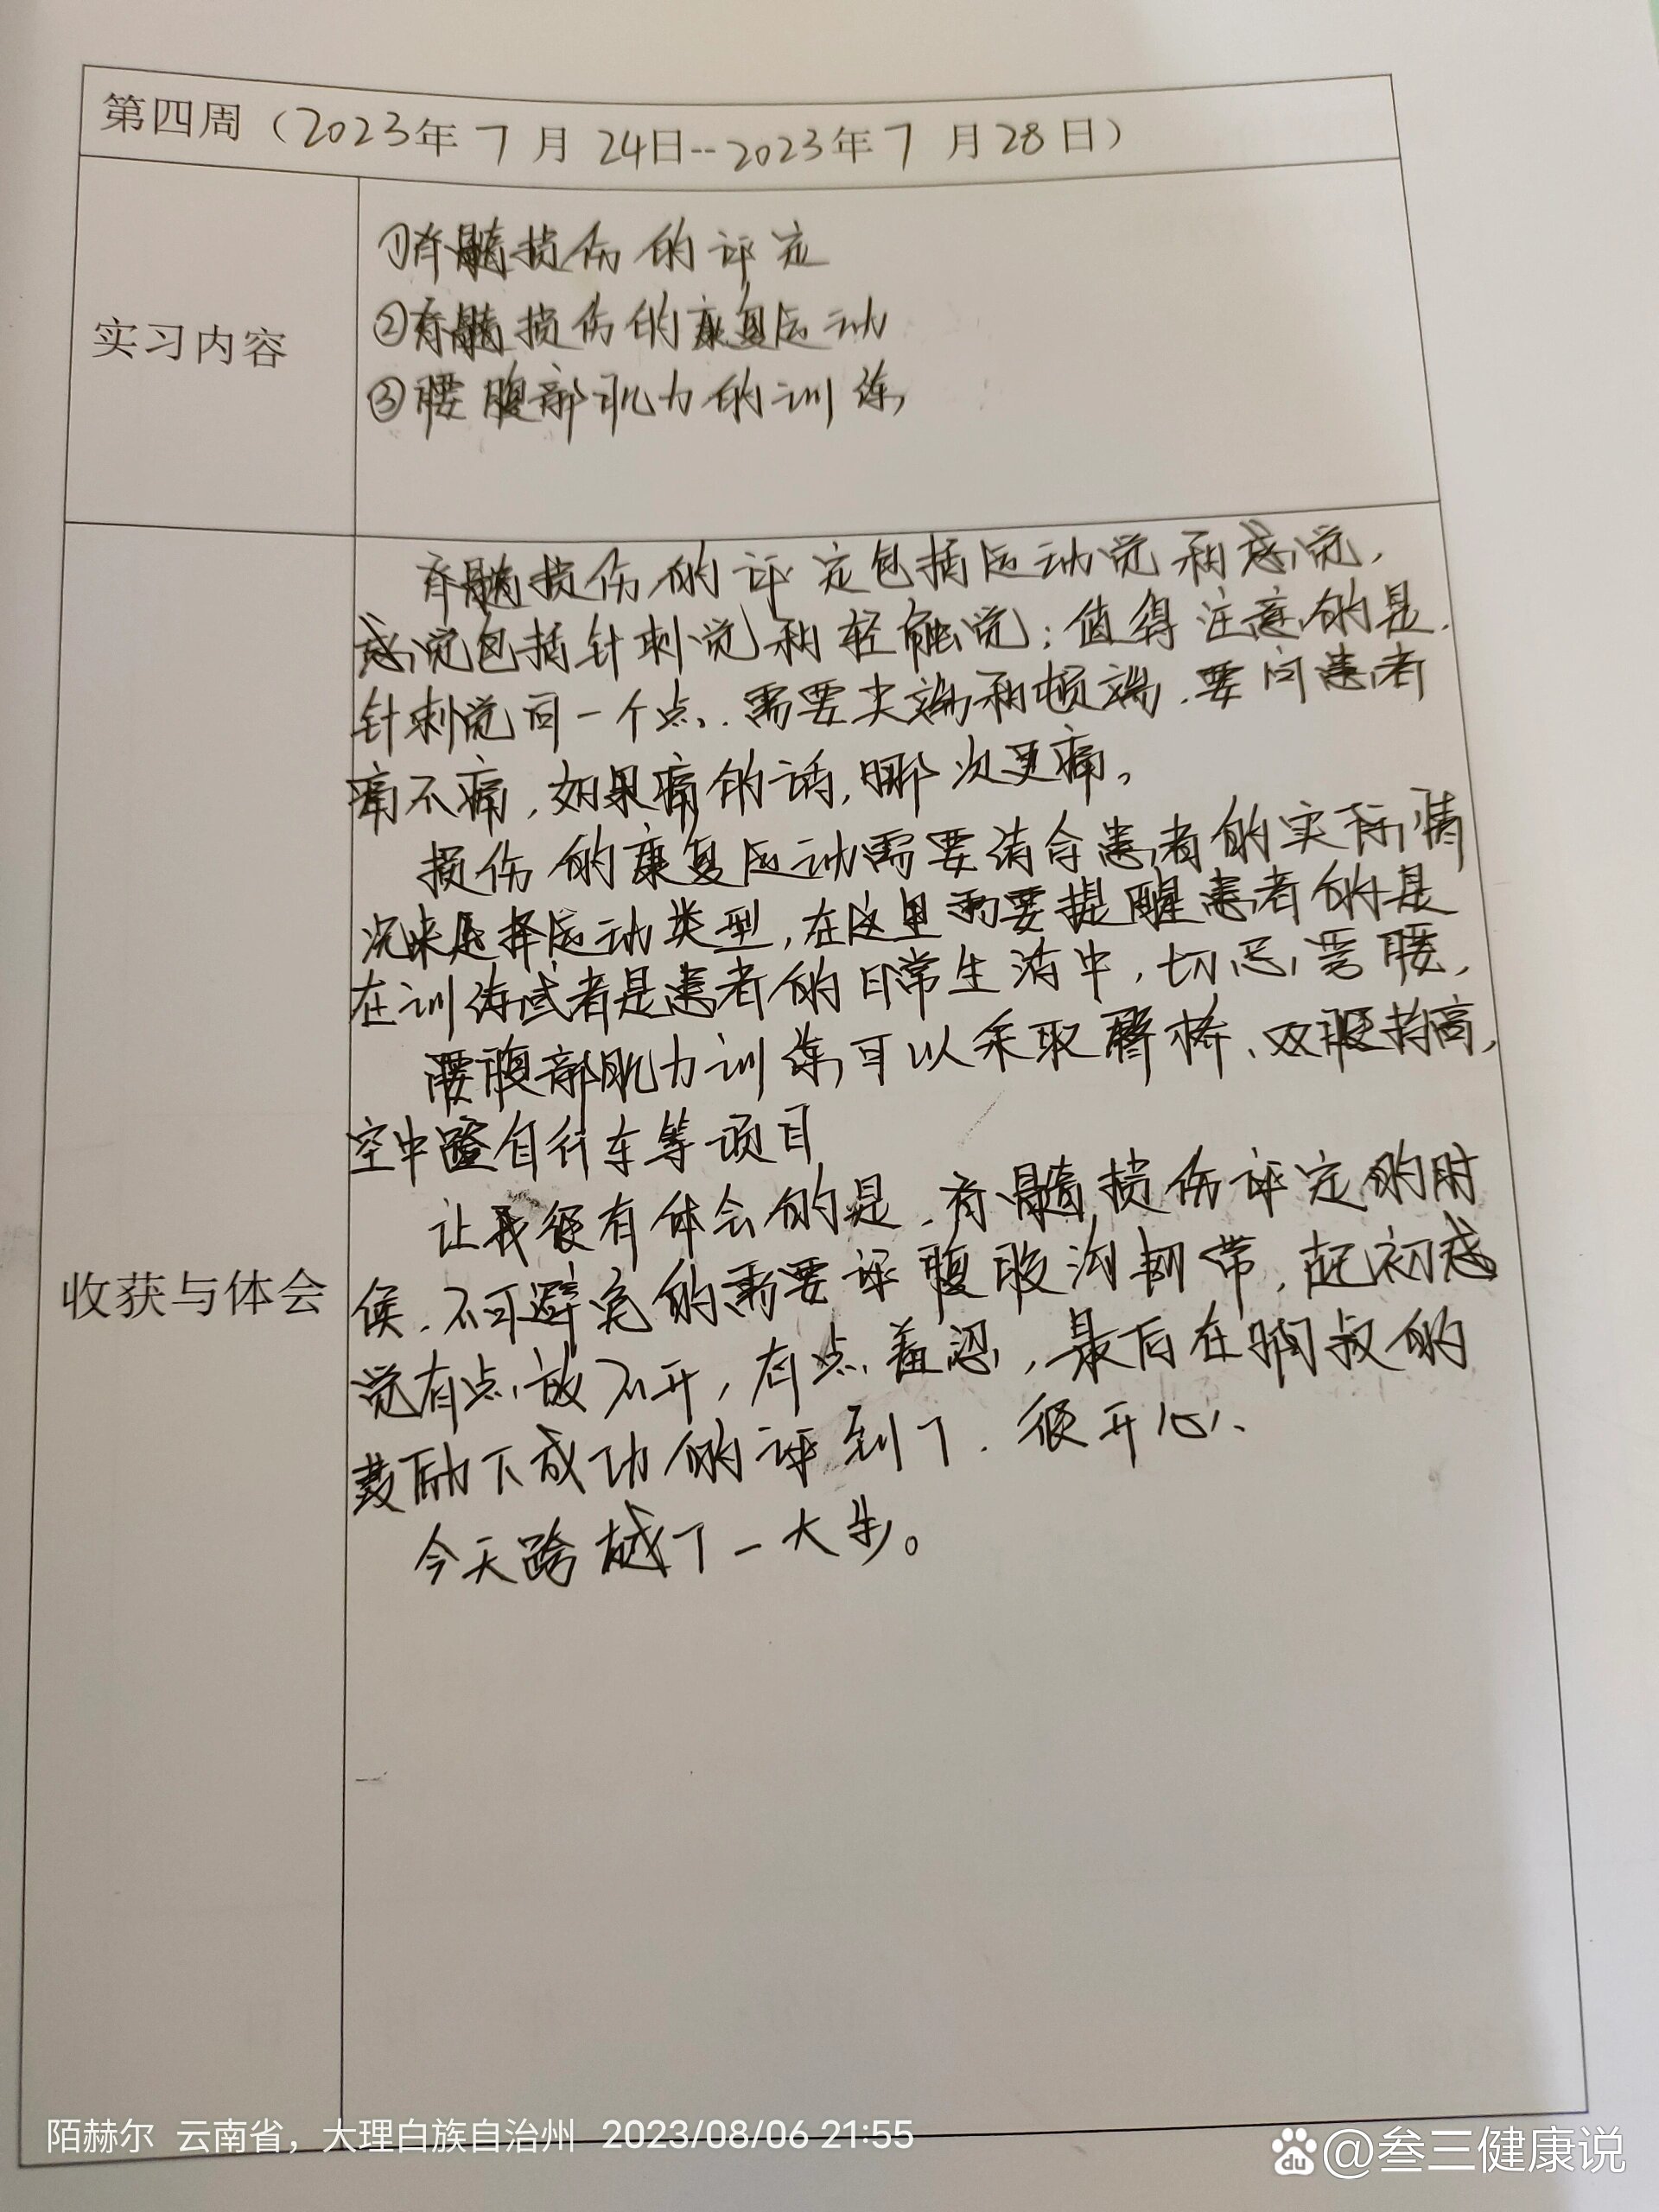 第四周（2023年7月24日--2023年7月28日）
实习内容
①脊髓损伤的评定
②脊髓损伤的康复运动
③腰腹部肌力的训练
收获与体会
脊髓损伤的评定包括运动觉和感觉，
感觉包括针刺觉和轻触觉；值得注意的是，
针刺觉同一个点，需要尖端和顿端，要问患者
痛不痛，如果痛的话，哪次更痛。
损伤的康复运动需要结合患者的实际情
况来选择运动类型，在这里需要提醒患者的是
在训练或者是患者的日常生活中，切忌弯腰，
腰腹部肌力训练可以采取臀桥、双腿抬高，
空中蹬自行车等项目
让我很有体会的是，脊髓损伤评定的时
候，不可避免的需要评腹股沟韧带，起初感
觉有点放不开，有点羞涩，最后在叔的
鼓励下成功的评到了，很开心、
今天跨越了一大步。
陌赫尔 云南省，大理白族自治州 2023/08/06 21:55
du @叁三健康说